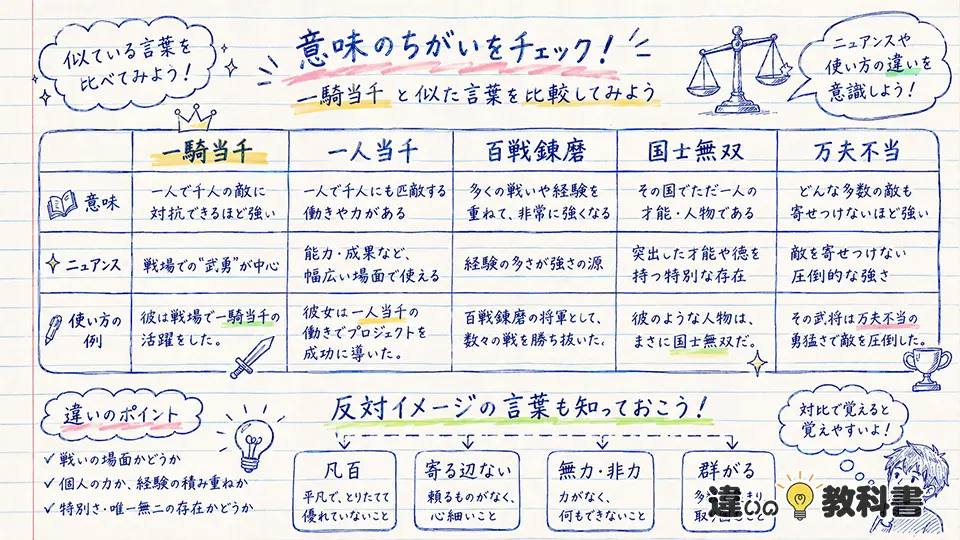 似ている言葉を
比べてみよう！
意味のちがいをチェック！
一騎当千 と似た言葉を比較してみよう
ニュアンスや
使い方の違いを
意識しよう！
一騎当千
一人当千
百戦錬磨
国士無双
万夫不当
意味
一人で千人の敵に
対抗できるほど強い
一人で千人にも匹敵する
働きや力がある
多くの戦いや経験を
重ねて、非常に強くなる
その国でただ一人の
才能・人物である
どんな多数の敵も
寄せつけないほど強い
ニュアンス
戦場での“武勇”が中心
能力・成果など、
幅広い場面で使える
経験の多さが強さの源
突出した才能や徳を
持つ特別な存在
敵を寄せつけない
圧倒的な強さ
使い方の
例
彼は戦場で一騎当千の
活躍をした。
彼女は一人当千の
働きでプロジェクトを
成功に導いた。
百戦錬磨の将軍として、
数々の戦を勝ち抜いた。
彼のような人物は、
まさに国士無双だ。
その武将は万夫不当の
勇猛さで敵を圧倒した。
違いのポイント
✓ 戦いの場面かどうか
✓ 個人の力か、経験の積み重ねか
✓ 特別さ・唯一無二の存在かどうか
反対イメージの言葉も知っておこう！
凡百
平凡で、とりたてて
優れていないこと
寄る辺ない
頼るものがなく、
心細いこと
無力・非力
力がなく、
何もできないこと
群がる
対比で覚えると
覚えやすいよ！
違いの教科書